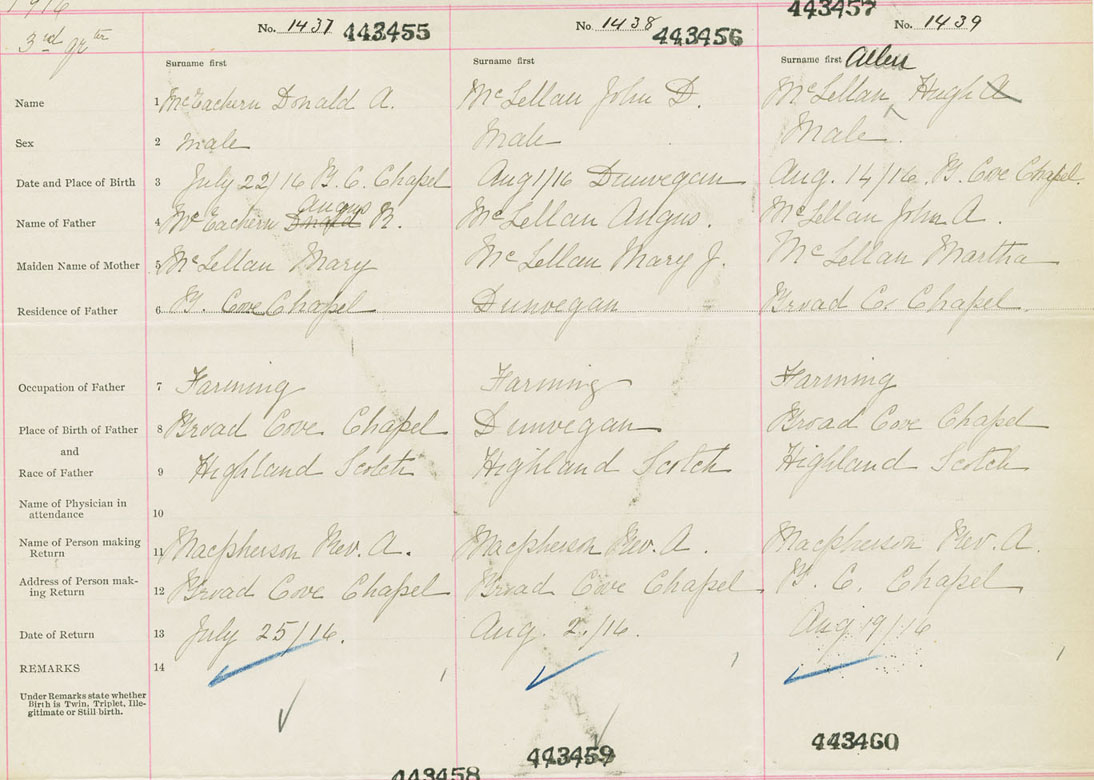 1916
3rd qr ter
443457
No. 1437 443455 No. 1438 443456 No. 1439
Surname first Surname first Surname first Allen
Name 1 McEachern Donald A. McLellan John D. McLellan ^ Hugh A
Sex 2 male Male Male.
Date and Place of Birth 3 July 22/16 B. C. Chapel Aug 1/16 Dunvegan Aug. 14/16. B. Cove Chapel.
Angus
Name of Father 4 McEachern Donald R. McLellan Angus. McLellan John A.
Maiden Name of Mother 5 McLellan Mary McLellan Mary J. McLellan Martha
Residence of Father 6 B. Cove Chapel Dunvegan Broad C. Chapel.
Occupation of Father 7 Farming Farming Farming
Place of Birth of Father 8 Broad Cove Chapel Dunvegan Broad Cove Chapel
and
Race of Father 9 Highland Scotch Highland Scotch Highland Scotch
Name of Physician in
attendance 10
Name of Person making
Return 11 Macpherson Rev. A. Macpherson Rev. A. Macpherson Rev. A.
Address of Person mak-
ing Return 12 Broad Cove Chapel Broad Cove Chapel B. C. Chapel
Date of Return 13 July 25/16. Aug. 2./16. Aug 19/16
REMARKS 14
Under Remarks state whether
Birth is Twin, Triplet, Ille-
gitimate or Still birth.
443458 443459 443460